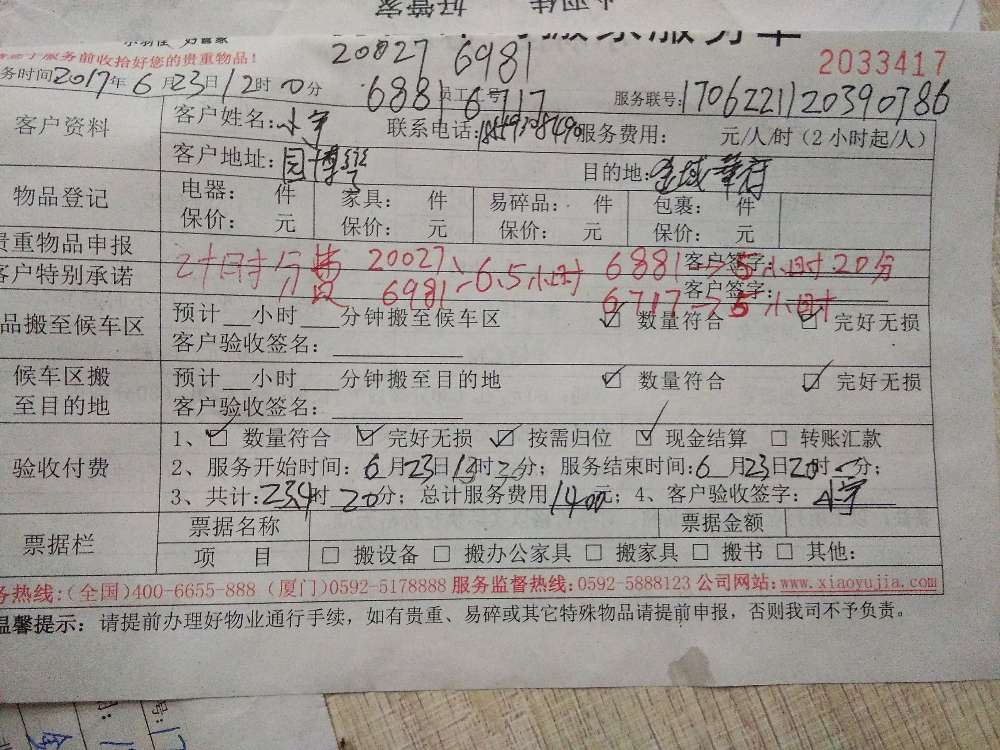 好管家
搬家服务单
小羽佳 好管家
服务前收拾好您的贵重物品!
20027 6981
2033417
务时间2017年6月23日12时00分
6881 员工工号 6717
服务联号:1706221120390786
客户资料
客户姓名:小宇 联系电话: 服务费用: 元/人/时(2小时起/人)
客户地址:园博 目的地:金域華府
物品登记
电器: 件 家具: 件 易碎品: 件 包裹: 件
保价: 元 保价: 元 保价: 元 保价: 元
贵重物品申报 客户签字:
客户特别承诺 客户签字:
20027、 6881→5小时20分
6981 6.5小时 6717→5小时
品搬至候车区
预计__小时___分钟搬至候车区 ☑ 数量符合 ☑ 完好无损
客户验收签名:
候车区搬至目的地
预计__小时___分钟搬至目的地 ☑ 数量符合 ☑ 完好无损
客户验收签名:
验收付费
1、☑ 数量符合 ☑ 完好无损 ☑ 按需归位 ☑ 现金结算 □ 转账汇款
2、服务开始时间:6月23日13时20分;服务结束时间:6月23日20时 分;
3、共计:234时20分;总计服务费用1400元;4、客户验收签字:小宇
票据栏
票据名称 票据金额
项 目 □ 搬设备 □ 搬办公家具 □ 搬家具 □ 搬书 □ 其他:
务热线:(全国)400-6655-888 (厦门)0592-5178888 服务监督热线:0592-5888123 公司网站:www.xiaoyujia.com
温馨提示:请提前办理好物业通行手续,如有贵重、易碎或其它特殊物品请提前申报,否则我司不予负责。